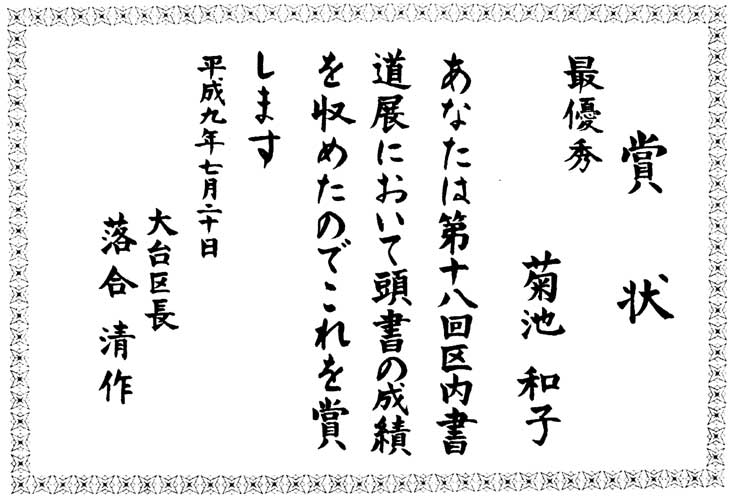 賞状
最優秀
菊池 和子
あなたは第十八回区内書
道展において頭書の成績
を収めたのでこれを賞
します
平成九年七月二十日
大台区長
落合 清作